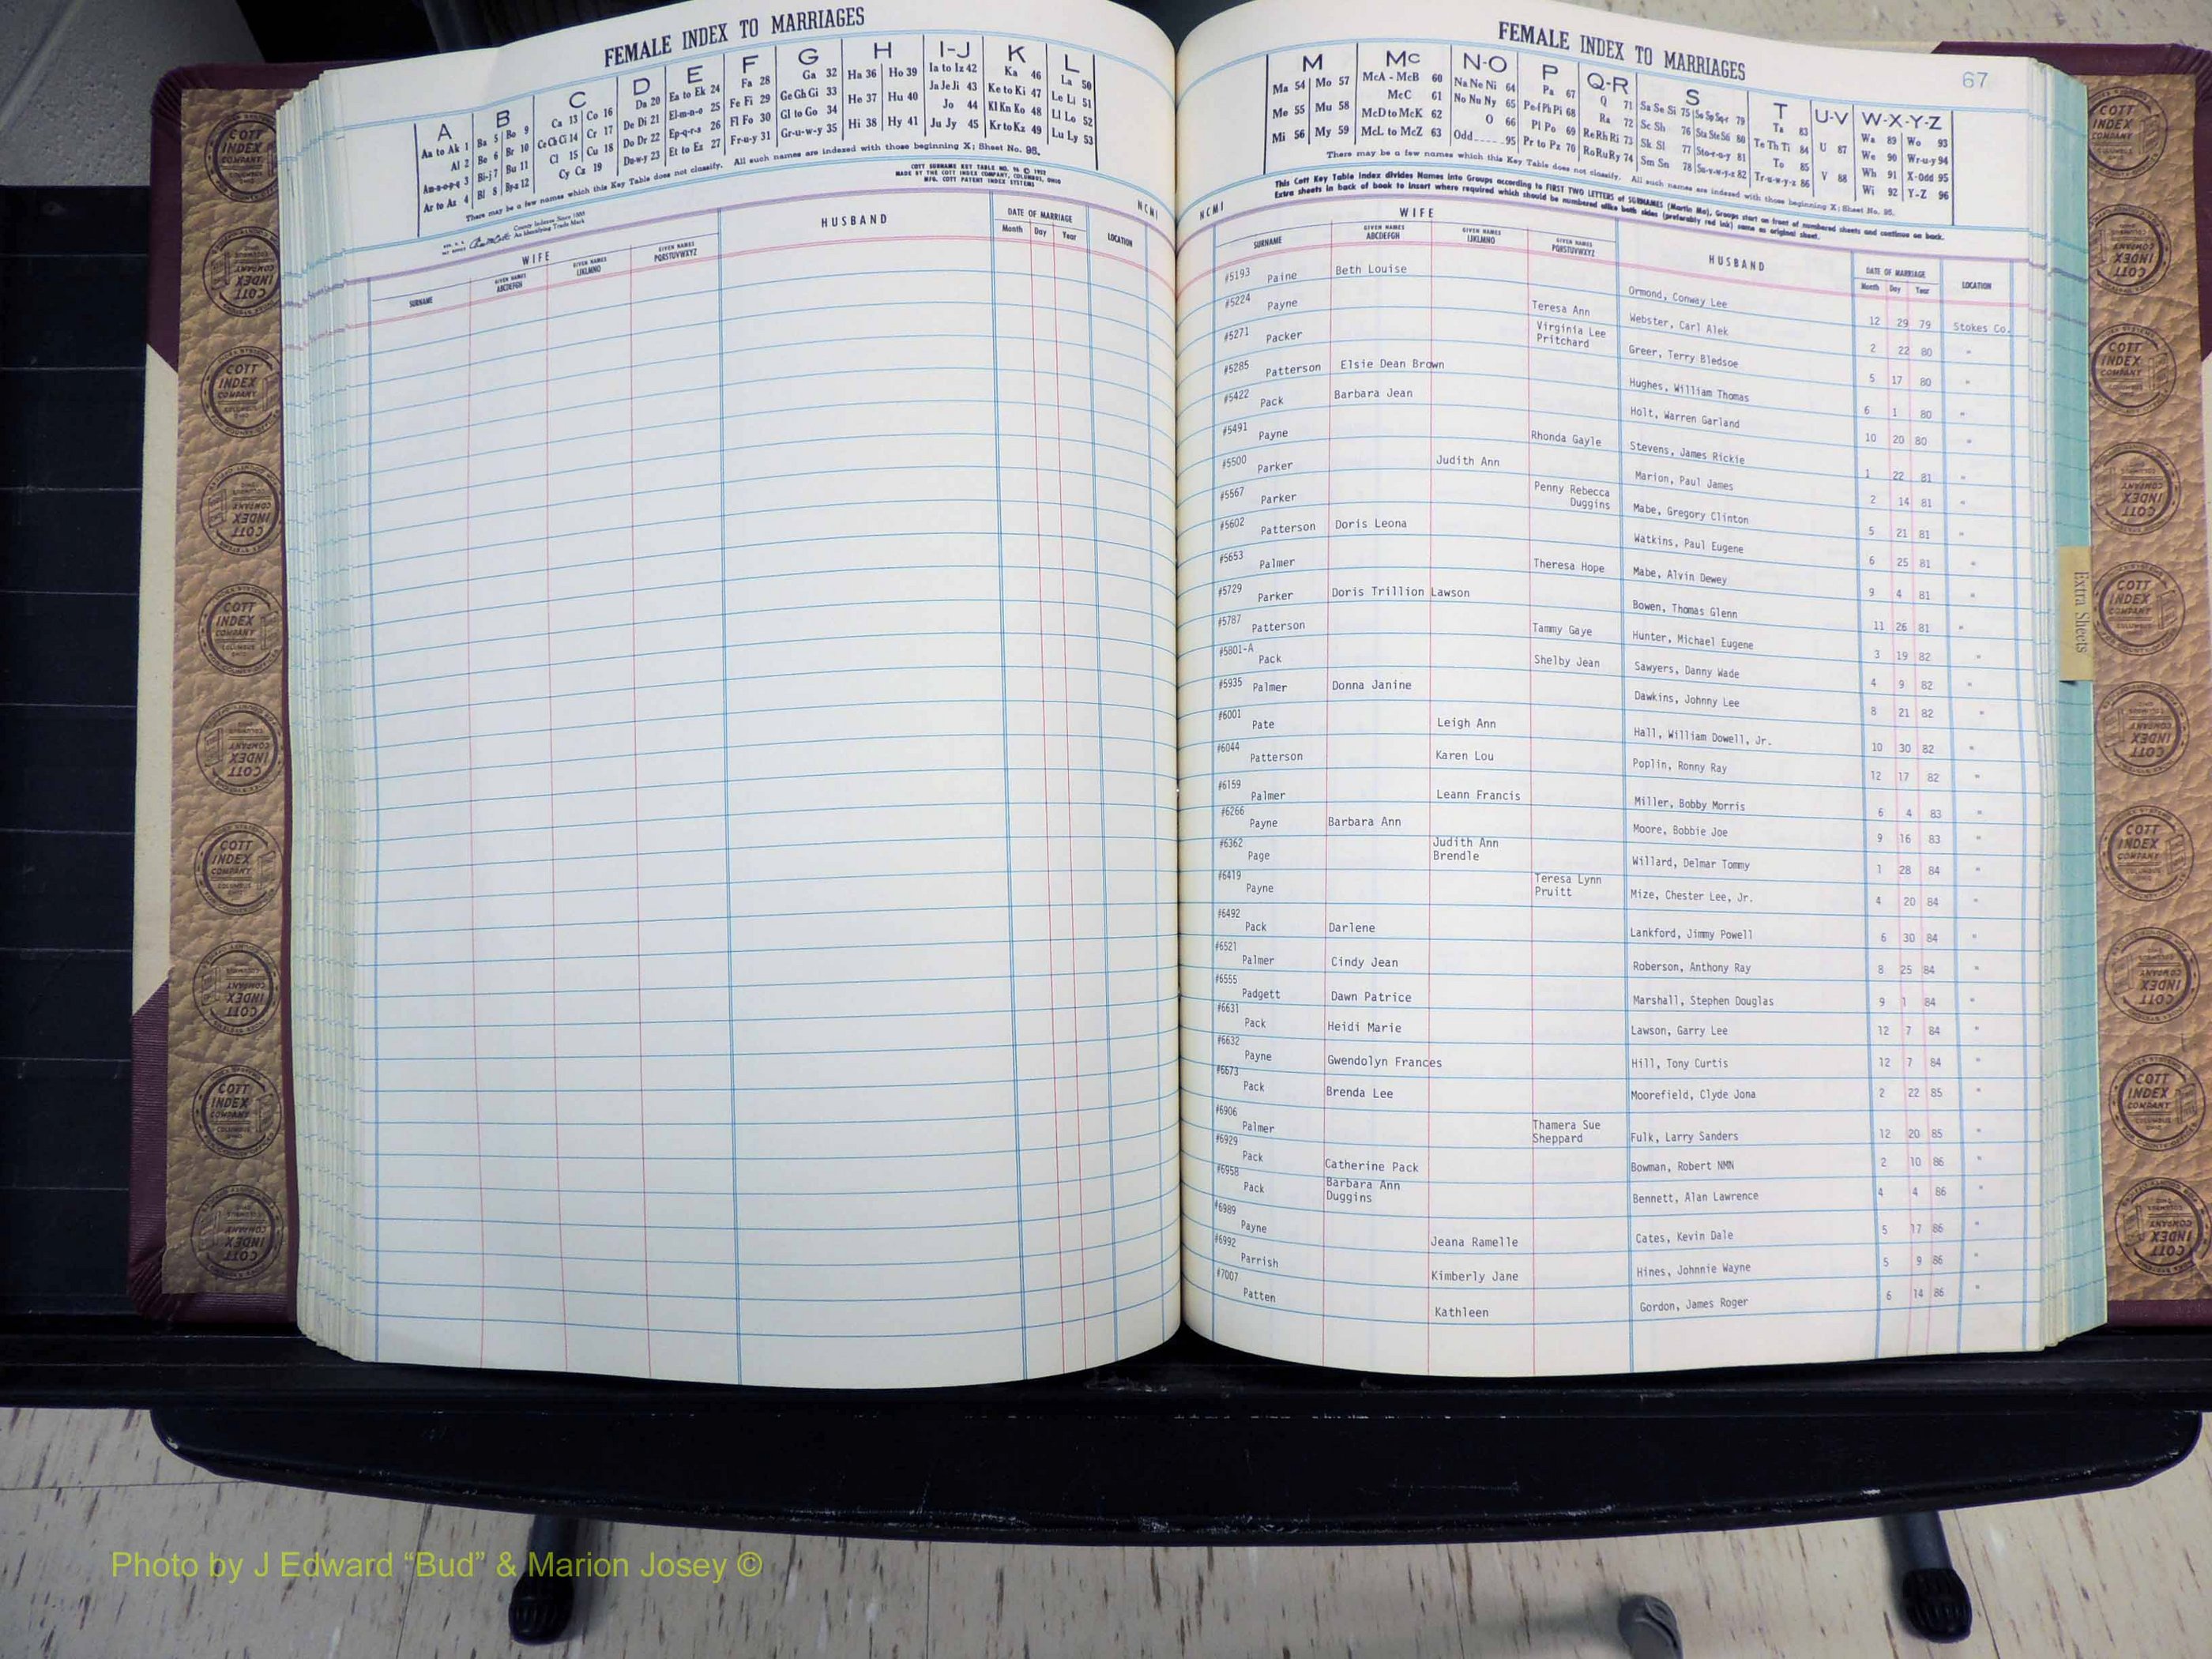 FEMALE INDEX TO MARRIAGES
A B C D E F G H I-J K L
Aa to Ak 1 Ba 5 Bo 9 Ca 13 Co 16 Da 20 Ea to Ek 24 Fa 28 Ga 32 Ha 36 Ho 39 Ia to Iz 42 Ka 46 La 50
Al 2 Be 6 Br 10 Ce Ch Ci 14 Cr 17 De Di 21 El-m-n-o 25 Fe Fi 29 Ge Gh Gi 33 He 37 Hu 40 Ja Je Ji 43 Ke to Ki 47 Le Li 51
An-s-o-p-q 3 Bi-j 7 Bu 11 Cl 15 Cu 18 Do Dr 22 Ep-q-r-s 26 Fl Fo 30 Gl to Go 34 Hi 38 Hy 41 Jo 44 Kl Kn Ko 48 Ll Lo 52
Ar to Az 4 Bl 8 By-z 12 Cy Cz 19 Du-w-y 23 Et to Ez 27 Fr-u-y 31 Gr-u-w-y 35 Ju Jy 45 Kr to Kz 49 Lu Ly 53
There may be a few names which this Key Table does not classify. All such names are indexed with those beginning X; Sheet No. 96.
COTT SURNAMES KEY TABLE NO. 96 © 1952
MADE BY THE COTT INDEX COMPANY, COLUMBUS, OHIO
MFG. COTT PATENT INDEX SYSTEMS
County Indexes Since 1888
An Identifying Trade Mark
NCMI
WIFE HUSBAND DATE OF MARRIAGE LOCATION
SURNAME GIVEN NAMES ABCDEFGH GIVEN NAMES IJKLMNO GIVEN NAMES PQRSTUVWXYZ Month Day Year
FEMALE INDEX TO MARRIAGES 67
M Mc N-O P Q-R S T U-V W-X-Y-Z
Ma 54 Mo 57 McA - McB 60 Na Ne Ni 64 Pa 67 Q 71 Sa Se Si 75 So Sp Sq-r 79 Ta 83 U 87 Wa 89 Wo 93
Me 55 Mu 58 McC 61 No Nu Ny 65 Pe-f Ph Pi 68 Ra 72 Sc Sh 76 Sta Ste Sti 80 Te Th Ti 84 V 88 We 90 Wr-u-y 94
Mi 56 My 59 McD to McK 62 O 66 Pl Po 69 Re Rh Ri 73 Sk Sl 77 Sto-r-u-y 81 To 85 Wh 91 X-Odd 95
McL to McZ 63 Odd 95 Pr to Pz 70 Ro Ru Ry 74 Sm Sn 78 Su-v-w-y-z 82 Tr-u-w-y-z 86 Wi 92 Y-Z 96
There may be a few names which this Key Table does not classify. All such names are indexed with those beginning X; Sheet No. 96.
This Cott Key Table Index divides Names into Groups according to FIRST TWO LETTERS of SURNAMES (Martin Ma), Groups start on front of numbered sheets and continue on back.
Extra sheets in back of book to insert where required which should be numbered alike both sides (preferably red ink) same as original sheet.
NCMI
WIFE HUSBAND DATE OF MARRIAGE LOCATION
SURNAME GIVEN NAMES ABCDEFGH GIVEN NAMES IJKLMNO GIVEN NAMES PQRSTUVWXYZ Month Day Year
#5193 Paine Beth Louise Ormond, Conway Lee 12 29 79 Stokes Co.
#5224 Payne Teresa Ann Webster, Carl Alek 2 22 80 "
#5271 Packer Virginia Lee Pritchard Greer, Terry Bledsoe 5 17 80 "
#5285 Patterson Elsie Dean Brown Hughes, William Thomas 6 1 80 "
#5422 Pack Barbara Jean Holt, Warren Garland 10 20 80 "
#5491 Payne Rhonda Gayle Stevens, James Rickie 1 22 81 "
#5500 Parker Judith Ann Marion, Paul James 2 14 81 "
#5567 Parker Penny Rebecca Duggins Mabe, Gregory Clinton 5 21 81 "
#5602 Patterson Doris Leona Watkins, Paul Eugene 6 25 81 "
#5653 Palmer Theresa Hope Mabe, Alvin Dewey 9 4 81 "
#5729 Parker Doris Trillion Lawson Bowen, Thomas Glenn 11 26 81 "
#5787 Patterson Tammy Gaye Hunter, Michael Eugene 3 19 82 "
#5801-A Pack Shelby Jean Sawyers, Danny Wade 4 9 82 "
#5935 Palmer Donna Janine Dawkins, Johnny Lee 8 21 82 "
#6001 Pate Leigh Ann Hall, William Dowell, Jr. 10 30 82 "
#6044 Patterson Karen Lou Poplin, Ronny Ray 12 17 82 "
#6159 Palmer Leann Francis Miller, Bobby Morris 6 4 83 "
#6266 Payne Barbara Ann Moore, Bobbie Joe 9 16 83 "
#6362 Page Judith Ann Brendle Willard, Delmar Tommy 1 28 84 "
#6419 Payne Teresa Lynn Pruitt Mize, Chester Lee, Jr. 4 20 84 "
#6492 Pack Darlene Lankford, Jimmy Powell 6 30 84 "
#6521 Palmer Cindy Jean Roberson, Anthony Ray 8 25 84 "
#6555 Padgett Dawn Patrice Marshall, Stephen Douglas 9 1 84 "
#6631 Pack Heidi Marie Lawson, Garry Lee 12 7 84 "
#6632 Payne Gwendolyn Frances Hill, Tony Curtis 12 7 84 "
#6673 Pack Brenda Lee Moorefield, Clyde Jona 2 22 85 "
#6906 Palmer Thamera Sue Sheppard Fulk, Larry Sanders 12 20 85 "
#6929 Pack Catherine Pack Bowman, Robert NMN 2 10 86 "
#6958 Pack Barbara Ann Duggins Bennett, Alan Lawrence 4 4 86 "
#6989 Payne Jeana Ramelle Cates, Kevin Dale 5 17 86 "
#6992 Parrish Kimberly Jane Hines, Johnnie Wayne 5 9 86 "
#7007 Patten Kathleen Gordon, James Roger 6 14 86 "
Extra Sheets
COTT INDEX COMPANY COLUMBUS OHIO
Photo by J Edward “Bud” & Marion Josey ©